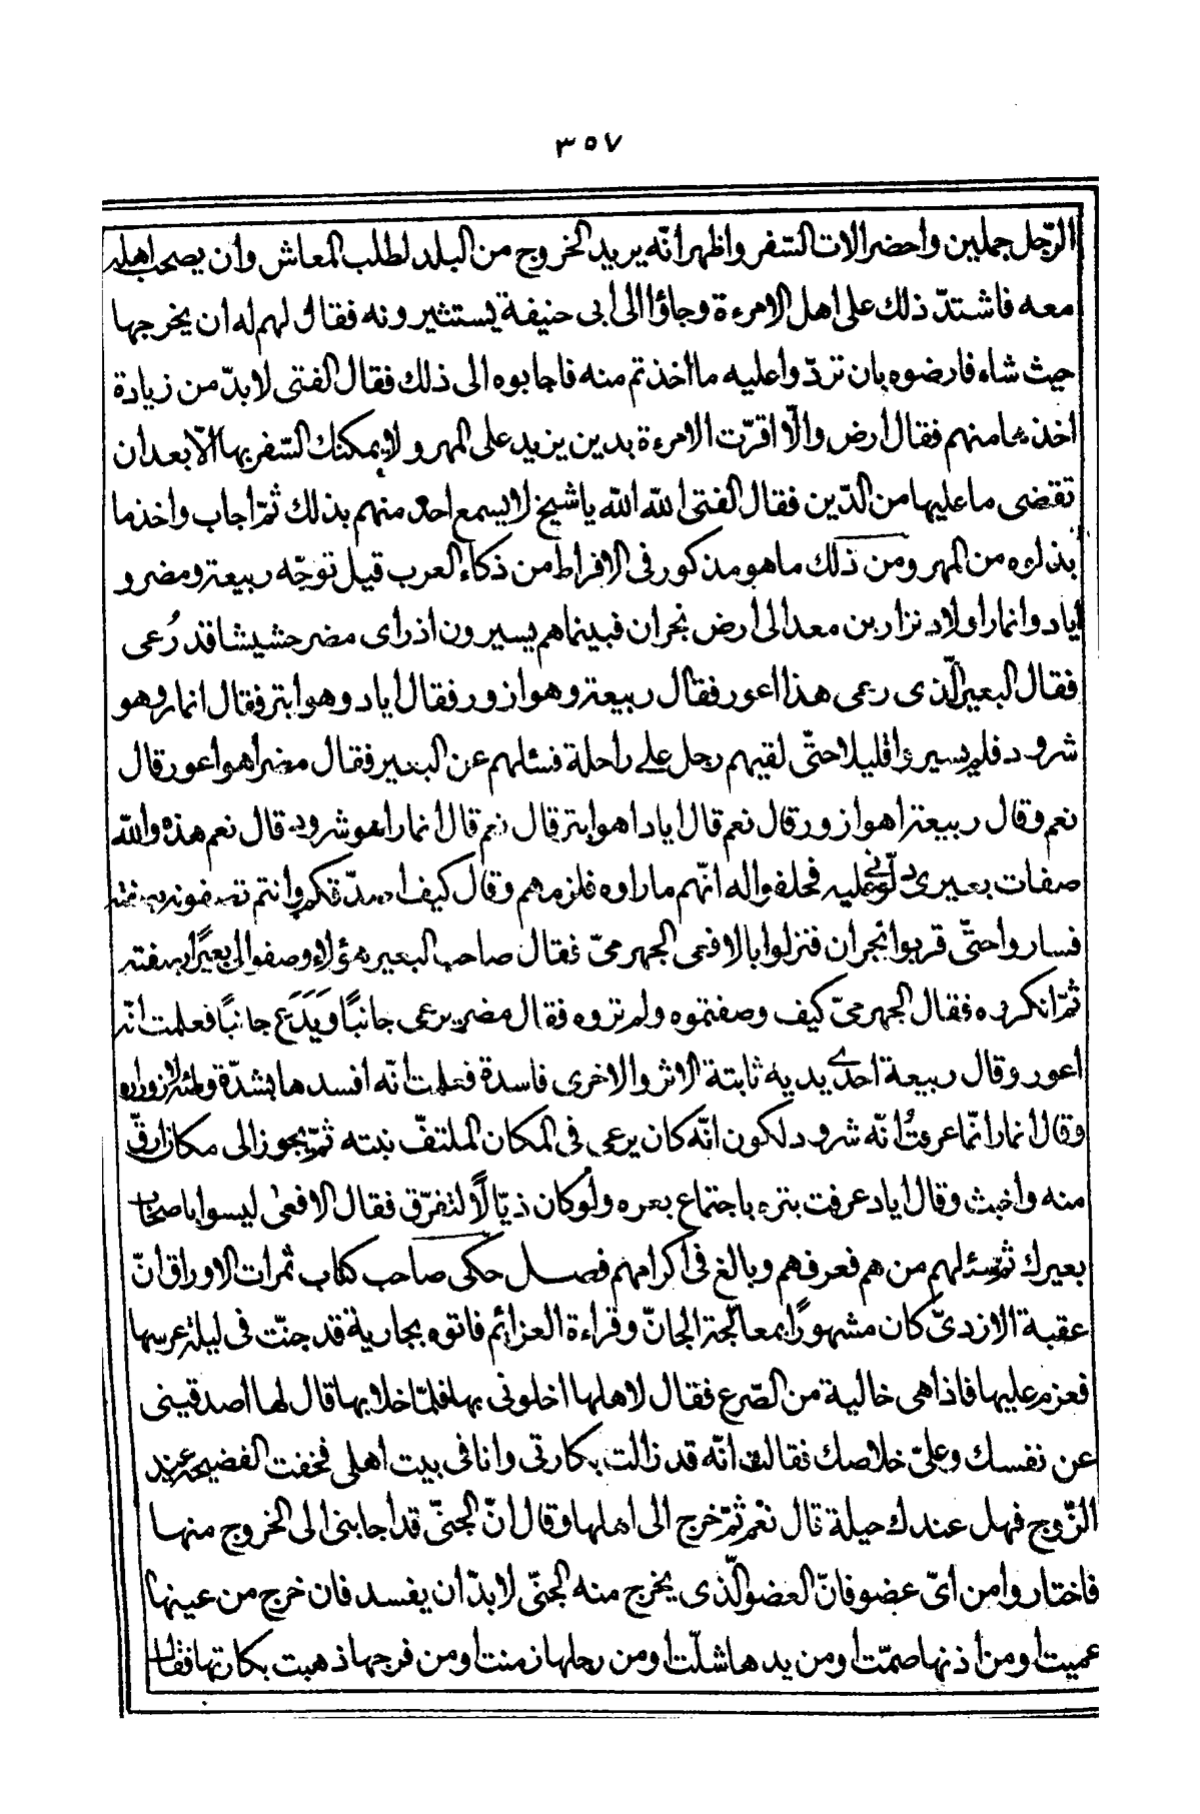 ٣٥٧
الرّجل جملين واحضر الات السّفر واظهر انّه يريد الخروج من البلد لطلب المعاش وان يصحب اهله
معه فاشتدّ ذلك على اهل الامرءة وجاؤا الى ابى حنيفة يستشيرونه فقال لهم له ان يخرجها
حيث شاء فارضوه بان تردّوا عليه ما اخذتم منه فاجابوه الى ذلك فقال الفتى لا بدّ من زيادة
اخذها منهم فقال ارض والّا اقرّت الامرءة بدين يزيد على المهر ولا يمكنك السّفر بها الّا بعد ان
تقضى ما عليها من الدّين فقال الفتى الله الله يا شيخ لا يسمع احد منهم بذلك ثمّ اجاب واخذ ما
بذلوه من المهر ومن ذلك ما هو مذكور فى الافراط من ذكاء العرب قيل توجّه ربيعة ومضر و
اياد وانمار اولاد نزار بن معد الى ارض نجران فبينما هم يسيرون اذ راى مضر حشيشا قد رُعى
فقال البعير الّذى رعى هذا اعور فقال ربيعة وهو ازور فقال اياد وهو ابتر فقال انمار وهو
شرود فلم يسيروا قليلا حتّى لقيهم رجل على راحلة فسئلهم عن البعير فقال مضر اهو اعور قال
نعم وقال ربيعة اهو ازور قال نعم قال اياد اهو ابتر قال نعم قال انمار اهو شرود قال نعم هذه والله
صفات بعيرى دلّونى عليه فحلفوا له انّهم ما راوه فلزمهم وقال كيف اصدّقكم وانتم تصفونه بصفته
فساروا حتّى قربوا نجران فنزلوا بالافعى الجهرمىّ فقال صاحب البعير هؤلاء وصفوا لى بعيرًا بصفته
ثمّ انكروه فقال الجهرمىّ كيف وصفتموه ولم تروه فقال مضر يرعى جانبًا ويَدَع جانبًا فعلمت انّه
اعور وقال ربيعة احدى يديه ثابتة الاثر والاخرى فاسدة فعلمت انّه افسدها بشدّة وطئه لازوراره
وقال انمار انّما عرفتُ انّه شرود لكون انّه كان يرعى فى المكان الملتفّ نبته ثمّ يجوز الى مكان ارقّ
منه واخبث وقال اياد عرفت بتره باجتماع بعره ولو كان ذيّالًا لتفرّق فقال الافعى ليسوا باصحاب
بعيرك ثمّ سئلهم من هم فعرفهم وبالغ فى اكرامهم فصل حكى صاحب كتاب ثمرات الاوراق انّ
عقبة الازدىّ كان مشهورًا بمعالجة الجانّ وقراءة العزائم فاتوه بجارية قد جنّت فى ليلة عرسها
فعزم عليها فاذا هى خالية من الصّرع فقال لاهلها اخلونى بها فلمّا خلا بها قال لها اصدقينى
عن نفسك وعلىّ خلاصك فقالت انّه قد زالت بكارتى وانا فى بيت اهلى فخفت الفضيحة عند
الزّوج فهل عندك حيلة قال نعم ثمّ خرج الى اهلها وقال انّ الجنّى قد اجابنى الى الخروج منها
فاختاروا من اىّ عضو فانّ العضو الّذى يخرج منه الجنّى لا بدّ ان يفسد فان خرج من عينها
عميت ومن اذنها صمّت ومن يدها شلّت ومن رجلها زمنت ومن فرجها ذهبت بكارتها فقال